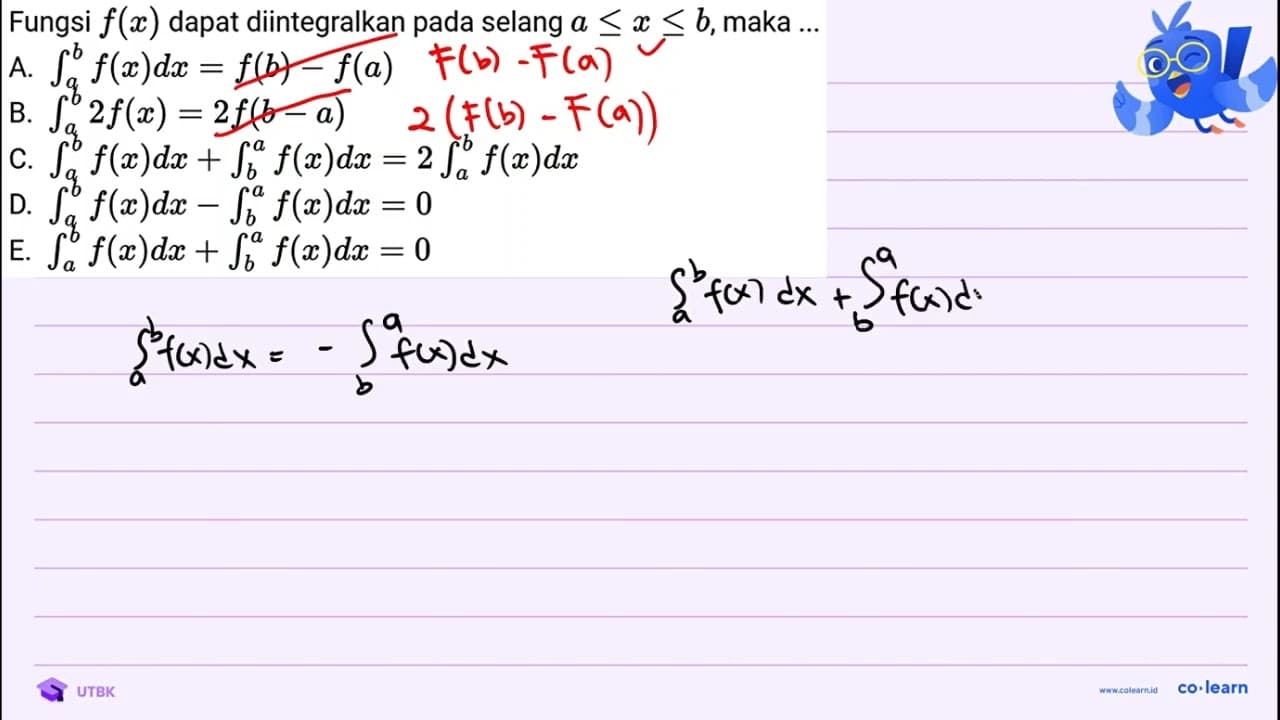 Fungsi f(x) dapat diintegralkan pada selang a ≤ x ≤ b, maka ...
A. ∫_a^b f(x)dx = f(b) − f(a) F(b) - F(a) ✓
B. ∫_a^b 2f(x) = 2f(b − a) 2(F(b) - F(a))
C. ∫_a^b f(x)dx + ∫_b^a f(x)dx = 2 ∫_a^b f(x)dx
D. ∫_a^b f(x)dx − ∫_b^a f(x)dx = 0
E. ∫_a^b f(x)dx + ∫_b^a f(x)dx = 0
∫_a^b f(x) dx + ∫_b^a f(x)d
∫_a^b f(x)dx = - ∫_b^a f(x)dx
UTBK
www.colearn.id co·learn